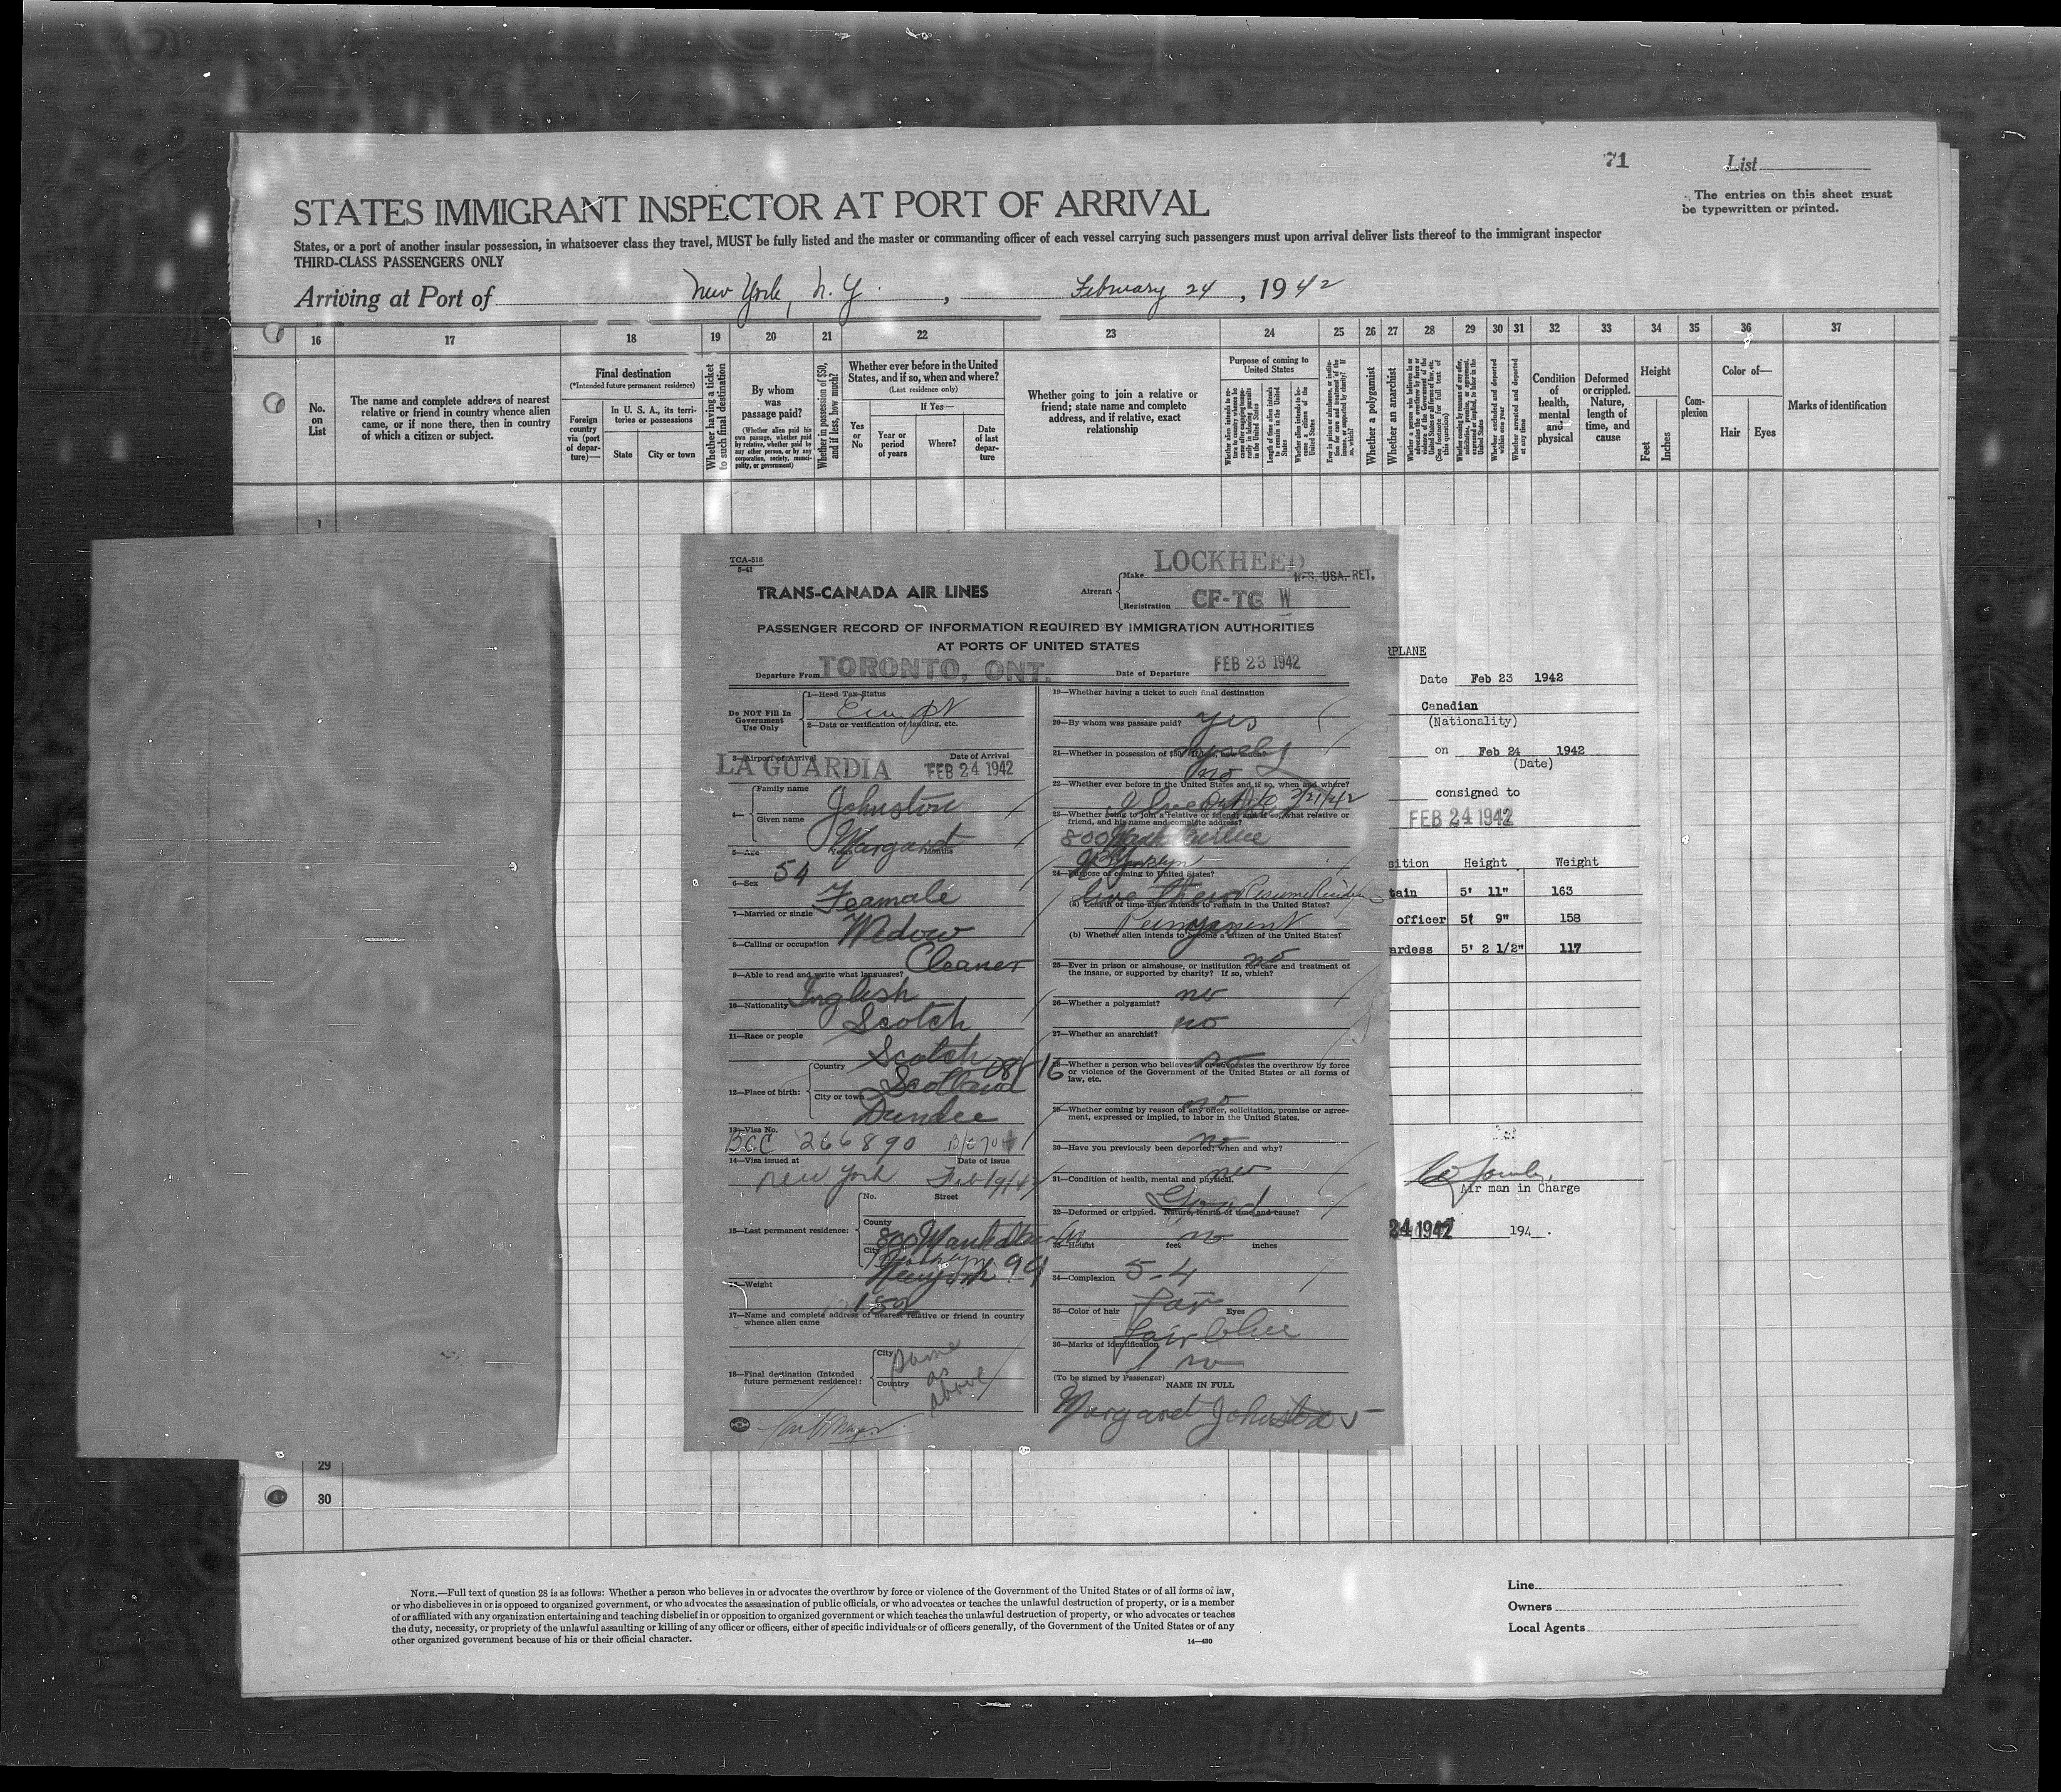 71
List
The entries on this sheet must
be typewritten or printed.
STATES IMMIGRANT INSPECTOR AT PORT OF ARRIVAL
States, or a port of another insular possession, in whatsoever class they travel, MUST be fully listed and the master or commanding officer of each vessel carrying such passengers must upon arrival deliver lists thereof to the immigrant inspector
THIRD-CLASS PASSENGERS ONLY
Arriving at Port of New York, N. Y. , February 24, 1942
16 17 18 19 20 21 22 23 24 25 26 27 28 29 30 31 32 33 34 35 36 37
No. on List
The name and complete address of nearest
relative or friend in country whence alien
came, or if none there, then in country
of which a citizen or subject.
Final destination
(*Intended future permanent residence)
Foreign country via (port of departure)—
In U. S. A., its territories or possessions
State
City or town
Whether having a ticket to such final destination
By whom was passage paid?
(Whether alien paid his own passage, whether paid by relative, whether paid by any other person, or by any corporation, society, municipality, or government)
Whether in possession of $50, and if less, how much?
Whether ever before in the United
States, and if so, when and where?
(Last residence only)
Yes or No
If Yes—
Year or period of years
Where?
Date of last departure
Whether going to join a relative or
friend; state name and complete
address, and if relative, exact
relationship
Purpose of coming to United States
Length of time alien intends to remain in the United States
Whether a polygamist
Whether an anarchist
Whether arrested and deported at any time
Condition of health, mental and physical
Deformed or crippled. Nature, length of time, and cause
Height
Feet
Inches
Complexion
Color of—
Hair
Eyes
Marks of identification
1
TCA-518
5-41
TRANS-CANADA AIR LINES
Aircraft
Make LOCKHEED
USA. RET.
Registration CF-TG W
PASSENGER RECORD OF INFORMATION REQUIRED BY IMMIGRATION AUTHORITIES
AT PORTS OF UNITED STATES
Departure From TORONTO, ONT.
Date of Departure FEB 23 1942
Do NOT Fill In
Government
Use Only
1—Head Tax Status
2—Data or verification of landing, etc.
3—Airport of Arrival LA GUARDIA
Date of Arrival FEB 24 1942
4— Family name Johnston
Given name Margaret
5—Age Years Months 54
6—Sex Feamale
7—Married or single Widow
8—Calling or occupation Cleaner
9—Able to read and write what languages? Inglish
10—Nationality Scotch
11—Race or people Scotch
12—Place of birth: Country Scotland
City or town Dundee
13—Visa No. BCC 266890
14—Visa issued at New York
Date of issue Feb 19/42
15—Last permanent residence:
No. Street
County
City
New York
16—Weight 152
17—Name and complete address of nearest relative or friend in country
whence alien came
18—Final destination (Intended
future permanent residence):
City
Country
Same
as
above
19—Whether having a ticket to such final destination
yes
20—By whom was passage paid?
myself
21—Whether in possession of $50, if less, how much?
no
22—Whether ever before in the United States and if so, when and where?
23—Whether going to join a relative or friend; and if so, what relative or
friend, and his name and complete address?
24—Purpose of coming to United States?
live there
(a) Length of time alien intends to remain in the United States?
Permanent
(b) Whether alien intends to become a citizen of the United States?
no
25—Ever in prison or almshouse, or institution for care and treatment of
the insane, or supported by charity? If so, which?
no
26—Whether a polygamist?
no
27—Whether an anarchist?
no
28—Whether a person who believes in or advocates the overthrow by force
or violence of the Government of the United States or all forms of
law, etc.
no
29—Whether coming by reason of any offer, solicitation, promise or agree-
ment, expressed or implied, to labor in the United States.
no
30—Have you previously been deported; when and why?
no
31—Condition of health, mental and physical.
Good
32—Deformed or crippled. Nature, length of time and cause?
no
33—Height feet inches
5-4
34—Complexion
Fair
35—Color of hair Eyes
fair blue
36—Marks of identification
no
(To be signed by Passenger)
NAME IN FULL
Margaret Johnston
RPLANE
Date Feb 23 1942
Canadian
(Nationality)
on Feb 24 1942
(Date)
consigned to
FEB 24 1942
sition Height Weight
tain 5' 11" 163
officer 5' 9" 158
ardess 5' 2 1/2" 117
Air man in Charge
24 1942 194 .
29
30
NOTE.—Full text of question 28 is as follows: Whether a person who believes in or advocates the overthrow by force or violence of the Government of the United States or of all forms of law,
or who disbelieves in or is opposed to organized government, or who advocates the assassination of public officials, or who advocates or teaches the unlawful destruction of property, or is a member
of or affiliated with any organization entertaining and teaching disbelief in or opposition to organized government or which teaches the unlawful destruction of property, or who advocates or teaches
the duty, necessity, or propriety of the unlawful assaulting or killing of any officer or officers, either of specific individuals or of officers generally, of the Government of the United States or of any
other organized government because of his or their official character.
14—430
Line
Owners
Local Agents